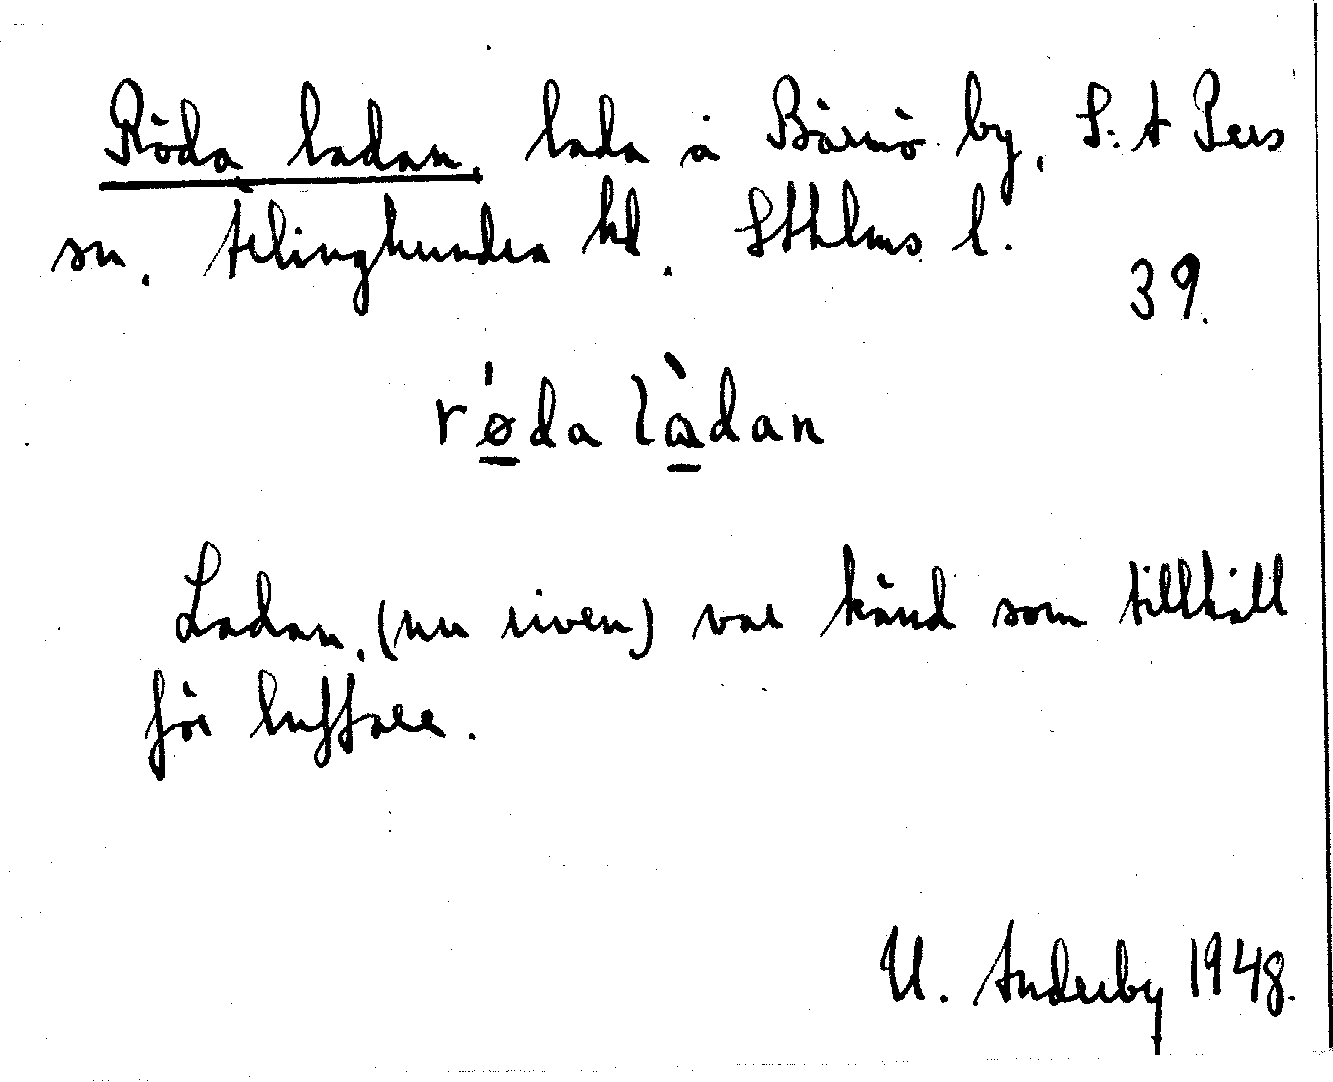 Röda ladan, lada å Bärmö by, S:t Pers
sn. Ærlinghundra hd. Sthlms l.
39.
røda làdan
Ladan, (nu riven) var känd som tillhåll
för luffare.
U. Anderby 1948.